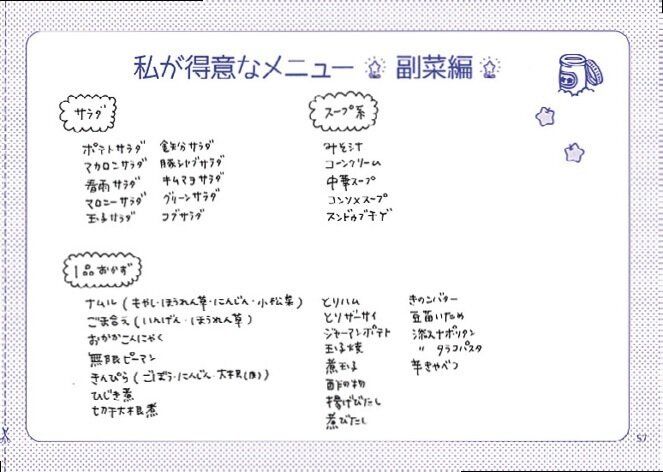 私が得意なメニュー 副菜編
サラダ
ポテトサラダ
マカロニサラダ
春雨サラダ
マロニーサラダ
玉子サラダ
豚しゃぶサラダ
キムマヨサラダ
グリーンサラダ
コブサラダ
スープ系
みそ汁
コーンクリーム
中華スープ
コンソメスープ
スンドゥブチゲ
1品おかず
ナムル(もやし・ほうれん草・にんじん・小松菜)
ごま合え(いんげん・ほうれん草)
おかかこんにゃく
無限ピーマン
きんぴら(ごぼう・にんじん・大根(皮))
ひじき煮
切干大根煮
とりハム
とりザーサイ
ジャーマンポテト
玉子焼
煮玉子
酢の物
揚げびたし
煮びたし
きのこバター
豆苗いため
添え ナポリタン
〃 タラコパスタ
芋きゃべつ
57